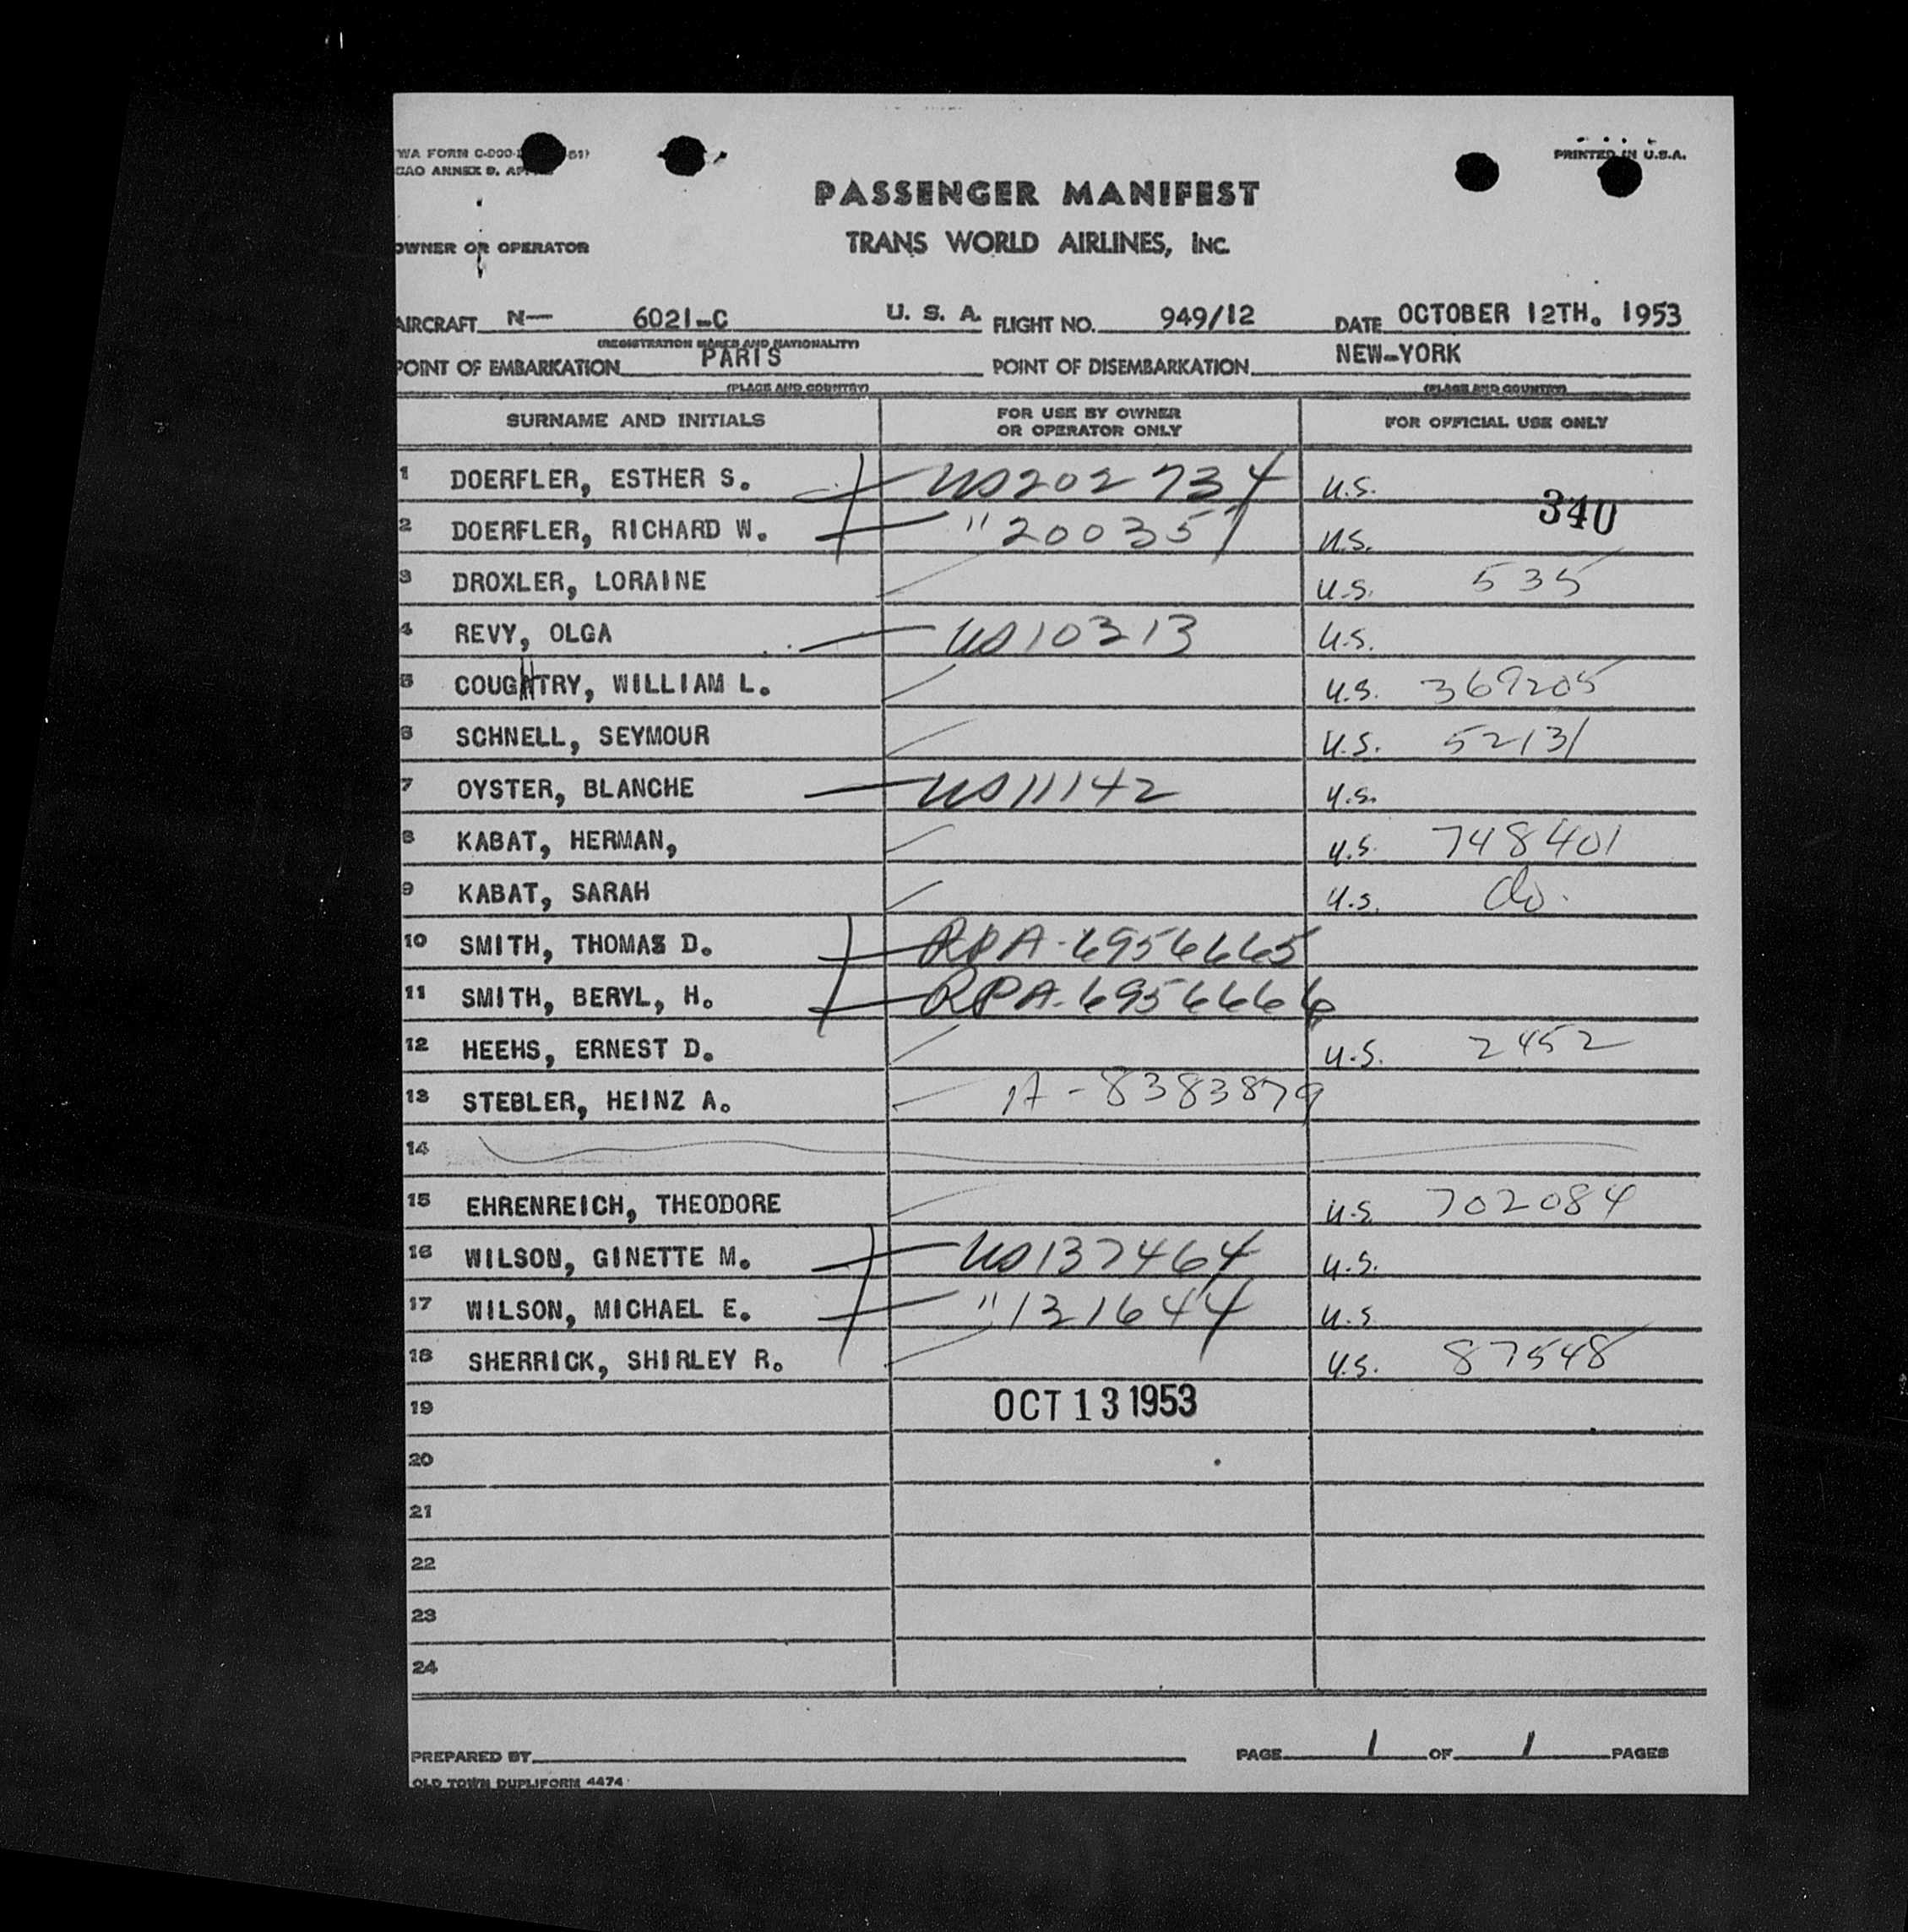 WA FORM C-900- 51)
CAO ANNEX 9. AP
PRINTED IN U.S.A.
PASSENGER MANIFEST
OWNER OR OPERATOR
TRANS WORLD AIRLINES, INC.
AIRCRAFT N— 6021-C U. S. A. FLIGHT NO. 949/12 DATE OCTOBER 12TH. 1953
(REGISTRATION MARKS AND NATIONALITY)
POINT OF EMBARKATION PARIS POINT OF DISEMBARKATION NEW-YORK
(PLACE AND COUNTRY) (PLACE AND COUNTRY)
SURNAME AND INITIALS FOR USE BY OWNER OR OPERATOR ONLY FOR OFFICIAL USE ONLY
1 DOERFLER, ESTHER S. US202734 U.S.
340
2 DOERFLER, RICHARD W. " 200357 U.S.
3 DROXLER, LORAINE U.S. 535
4 REVY, OLGA US10313 U.S.
5 COUGHTRY, WILLIAM L. U.S. 369205
6 SCHNELL, SEYMOUR U.S. 52131
7 OYSTER, BLANCHE US11142 U.S.
8 KABAT, HERMAN, U.S. 748401
9 KABAT, SARAH U.S. do.
10 SMITH, THOMAS D. RPA-6956665
11 SMITH, BERYL, H. RPA-6956666
12 HEEHS, ERNEST D. U.S. 2452
13 STEBLER, HEINZ A. A-8383879
14
15 EHRENREICH, THEODORE U.S. 702084
16 WILSON, GINETTE M. US137464 U.S.
17 WILSON, MICHAEL E. " 121644 U.S.
18 SHERRICK, SHIRLEY R. U.S. 87548
19 OCT 13 1953
20
21
22
23
24
PREPARED BY PAGE 1 OF 1 PAGES
OLD TOWN DUPLIFORM 4474